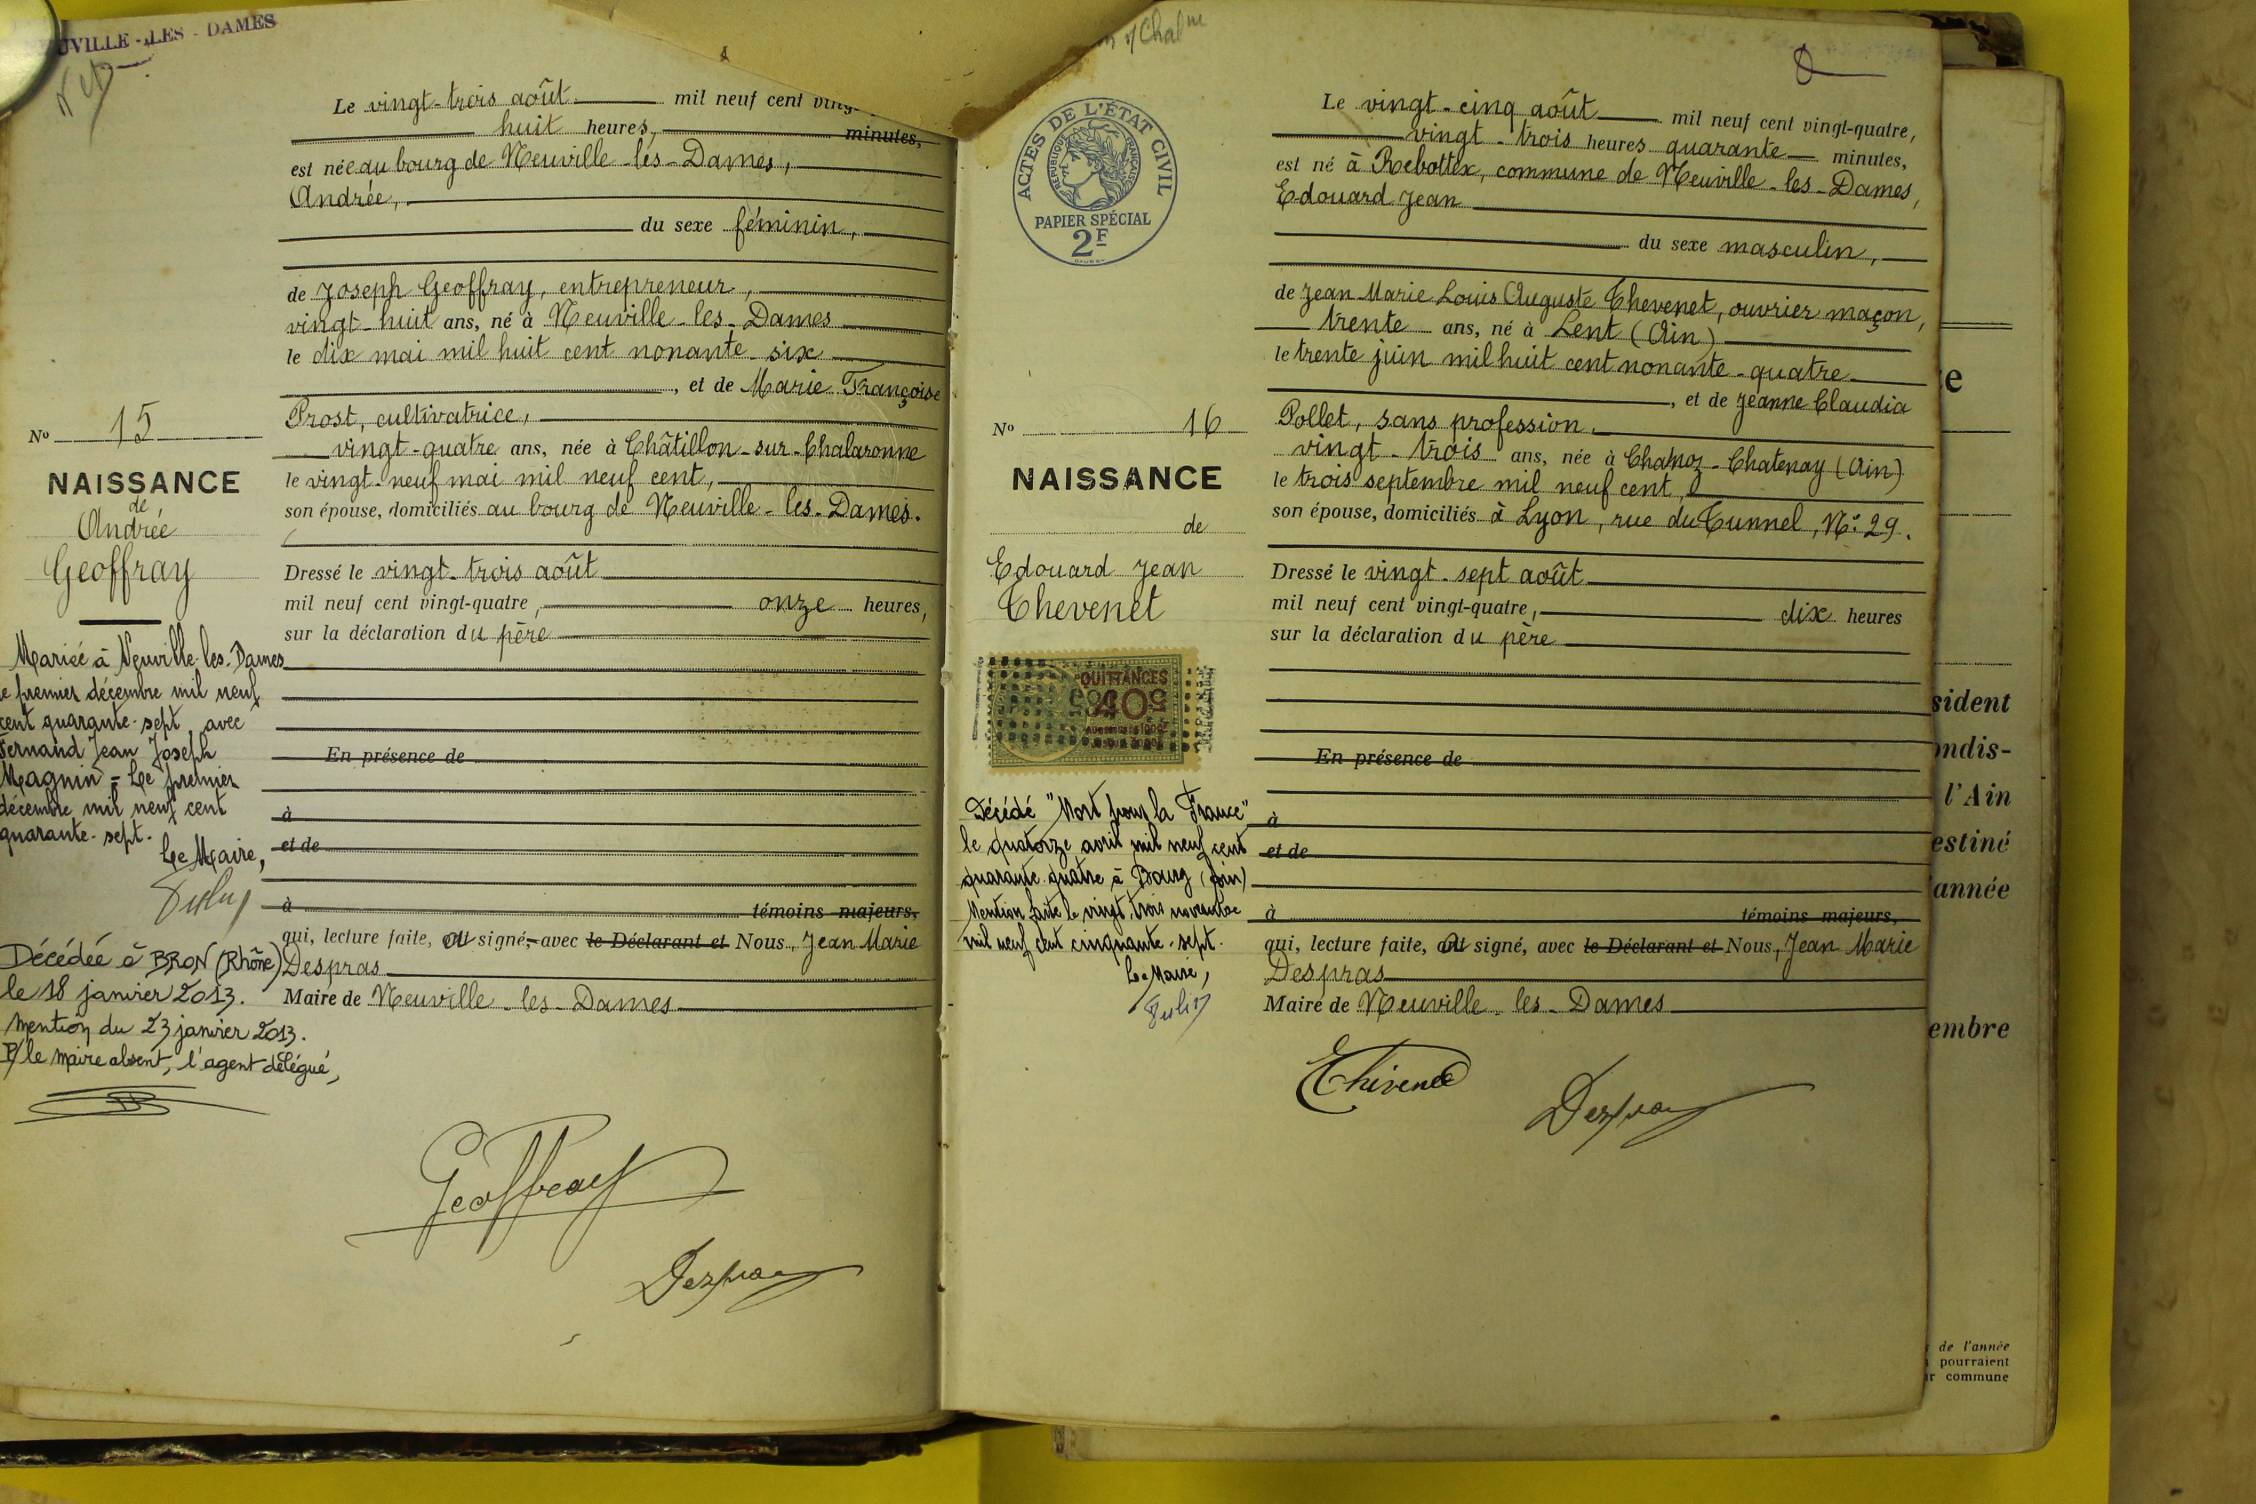 UVILLE - LES - DAMES
Le vingt-trois août mil neuf cent
huit heures, minutes,
est née au bourg de Neuville-les-Dames,
Andrée,
du sexe féminin,
de Joseph Geoffray, entrepreneur,
vingt-huit ans, né à Neuville-les-Dames
le dix mai mil huit cent nonante-six
, et de Marie Françoise
Prost, cultivatrice,
vingt-quatre ans, née à Châtillon-sur-Chalaronne
le vingt-neuf mai mil neuf cent,
son épouse, domiciliés au bourg de Neuville-les-Dames.
Dressé le vingt-trois août
mil neuf cent vingt-quatre, onze heures,
sur la déclaration du père
En présence de
à
et de
à témoins majeurs,
qui, lecture faite, ont signé, avec le Déclarant et Nous, Jean Marie
Despras
Maire de Neuville-les-Dames
Geoffray
Despras
No 15
NAISSANCE
de
Andrée
Geoffray
Mariée à Neuville-les-Dames
le premier décembre mil neuf
cent quarante-sept avec
Fernand Jean Joseph
Magnin = Le premier
décembre mil neuf cent
quarante-sept.
Le Maire,
Décédée à BRON (Rhône)
le 18 janvier 2013.
Mention du 23 janvier 2013.
P/ le maire absent, l'agent délégué,
ACTES DE L'ÉTAT CIVIL
RÉPUBLIQUE FRANÇAISE
PAPIER SPÉCIAL
2F
No 16
NAISSANCE
de
Edouard Jean
Thevenet
QUITTANCES
40c
Décédé "Mort pour la France"
le quatorze avril mil neuf cent
quarante-quatre à Bourg (Ain)
Mention faite le vingt-trois novembre
mil neuf cent cinquante-sept.
Le Maire,
Le vingt-cinq août mil neuf cent vingt-quatre,
vingt-trois heures quarante minutes,
est né à Rebottex, commune de Neuville-les-Dames,
Edouard Jean
du sexe masculin,
de Jean Marie Louis Auguste Thevenet, ouvrier maçon,
trente ans, né à Lent (Ain)
le trente juin mil huit cent nonante-quatre
, et de Jeanne Claudia
Pollet, sans profession
vingt-trois ans, née à Chanoz-Chatenay (Ain)
le trois septembre mil neuf cent,
son épouse, domiciliés à Lyon, rue du Tunnel, No: 29.
Dressé le vingt-sept août
mil neuf cent vingt-quatre, dix heures
sur la déclaration du père
En présence de
à
et de
à témoins majeurs,
qui, lecture faite, ont signé, avec le Déclarant et Nous, Jean Marie
Despras
Maire de Neuville-les-Dames
Thevenet
Despras
e
sident
ondis-
l'Ain
estiné
année
embre
de l'année
pourraient
r commune